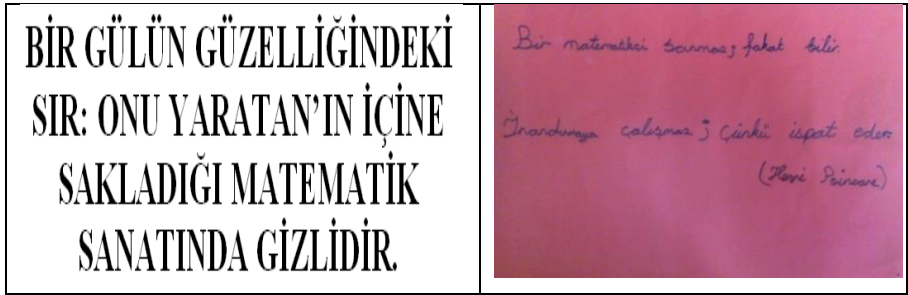 BİR GÜLÜN GÜZELLİĞİNDEKİ
SIR: ONU YARATAN'IN İÇİNE
SAKLADIĞI MATEMATİK
SANATINDA GİZLİDİR.
Bir matematikci sanmaz; fakat bilir.
İnandırmaya çalışmaz; Çünkü ispat eder.
(Henri Poincare)